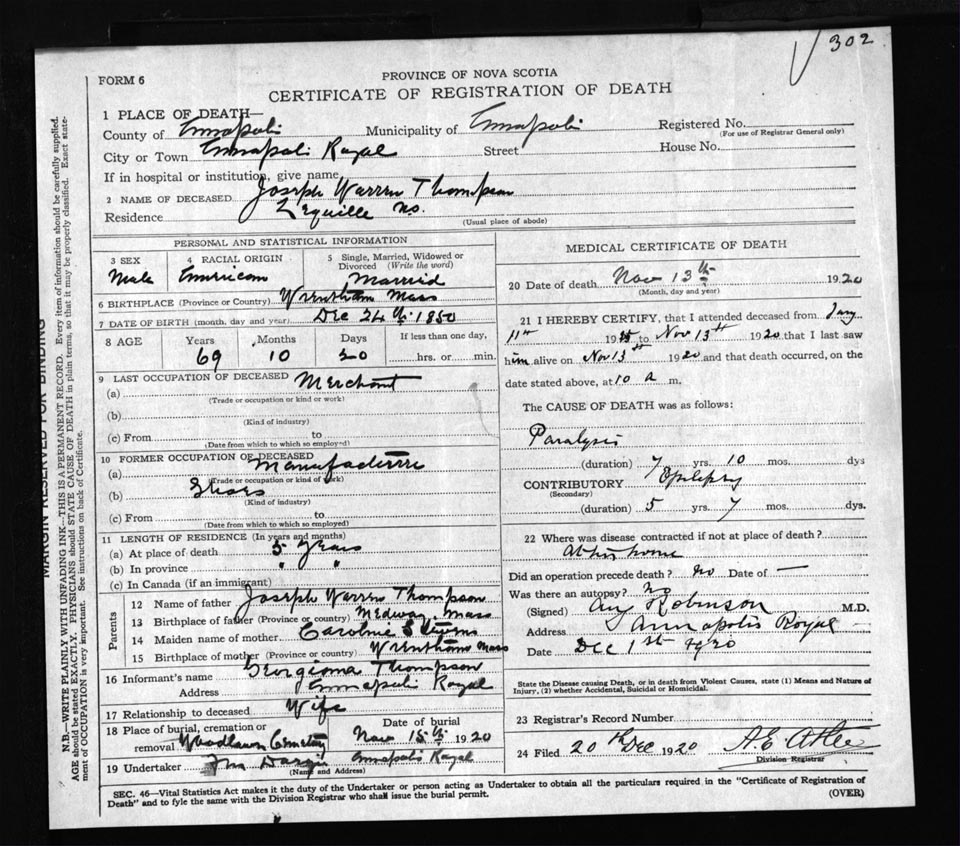 302
FORM 6
PROVINCE OF NOVA SCOTIA
CERTIFICATE OF REGISTRATION OF DEATH
1 PLACE OF DEATH—
County of Annapolis Municipality of Annapolis Registered No.
(For use of Registrar General only)
City or Town Annapolis Royal Street House No.
If in hospital or institution, give name
2 NAME OF DECEASED Joseph Warren Thompson
Residence Lequille NS.
(Usual place of abode)
PERSONAL AND STATISTICAL INFORMATION
3 SEX Male
4 RACIAL ORIGIN American
5 Single, Married, Widowed or Divorced (Write the word) Married
6 BIRTHPLACE (Province or Country) Wrentham Mass
7 DATE OF BIRTH (month, day and year) Dec 24th 1850
8 AGE Years 69 Months 10 Days 20 If less than one day, hrs. or min.
9 LAST OCCUPATION OF DECEASED
(a) Merchant
(Trade or occupation or kind or work)
(b)
(Kind of industry)
(c) From to
(Date from which to which so employed)
10 FORMER OCCUPATION OF DECEASED
(a) Manufacturer
(Trade or occupation or kind of work)
(b) Shoes
(Kind of industry)
(c) From to
(Date from which to which so employed)
11 LENGTH OF RESIDENCE (In years and months)
(a) At place of death 5 years
(b) In province " "
(c) In Canada (if an immigrant)
Parents
12 Name of father Joseph Warren Thompson
13 Birthplace of father (Province or country) Medway Mass
14 Maiden name of mother Caroline
15 Birthplace of mother (Province or country) Wrentham Mass
16 Informant's name Georgiana Thompson
Address Annapolis Royal
17 Relationship to deceased Wife
18 Place of burial, cremation or removal Woodlawn Cemetery
Date of burial Nov 15th 1920
19 Undertaker Annapolis Royal
(Name and Address)
MEDICAL CERTIFICATE OF DEATH
20 Date of death Nov 13th 1920
(Month, day and year)
21 I HEREBY CERTIFY, that I attended deceased from Jany
11th 19 to Nov 13th 1920 that I last saw
him alive on Nov 13th 1920 and that death occurred, on the
date stated above, at 10 a m.
The CAUSE OF DEATH was as follows:
Paralysis
(duration) 7 yrs. 10 mos. dys
CONTRIBUTORY Epilepsy
(Secondary)
(duration) 5 yrs. 7 mos. dys.
22 Where was disease contracted if not at place of death?
At his home
Did an operation precede death? no Date of —
Was there an autopsy? no
(Signed) Robinson M.D.
Address Annapolis Royal
Date Dec 1st 1920
State the Disease causing Death, or in death from Violent Causes, state (1) Means and Nature of
Injury, (2) whether Accidental, Suicidal or Homicidal.
23 Registrar's Record Number
24 Filed 20th Dec 1920
Division Registrar
SEC. 46—Vital Statistics Act makes it the duty of the Undertaker or person acting as Undertaker to obtain all the particulars required in the "Certificate of Registration of
Death" and to fyle the same with the Division Registrar who shall issue the burial permit.
(OVER)
MARGIN RESERVED FOR BINDING
N.B.—WRITE PLAINLY WITH UNFADING INK—THIS IS A PERMANENT RECORD. Every item of information should be carefully supplied.
AGE should be stated EXACTLY. PHYSICIANS should STATE CAUSE OF DEATH in plain terms, so that it may be properly classified. Exact statement of OCCUPATION is very important. See instructions on back of Certificate.